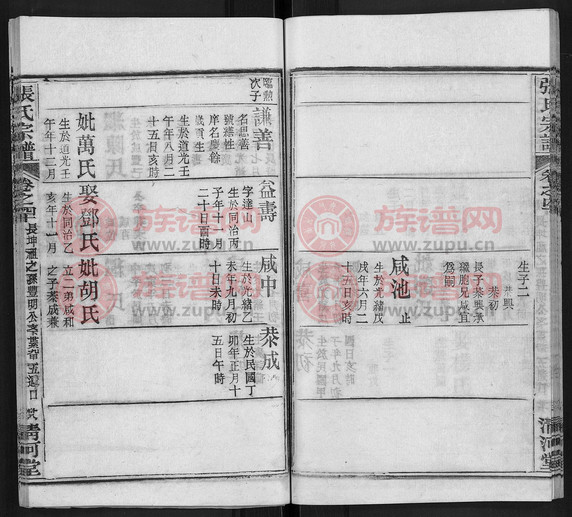 張氏宗譜
卷之
清河堂
生子二
恭興
長子恭興承
繼胞兄咸宜
為嗣
恭初
咸池 止
生於光緒戊
戌年六月二
十五日亥時
次子
謙善
名思善
號繕性
序名慶餘
歲貢生
生於道光壬
午年八月二
十五日亥時
妣萬氏
生於道光壬
午年十二月
益壽
字達山
生於同治丙
子年十一月
二十日酉時
娶鄧氏
生於同治乙
亥年十一月
咸中
生於光緒乙
未年九月初
十日未時
妣胡氏
立二弟咸和
之子恭成兼
恭成
生於民國丁
卯年正月十
五日午時
張氏宗譜
卷之四
清河堂